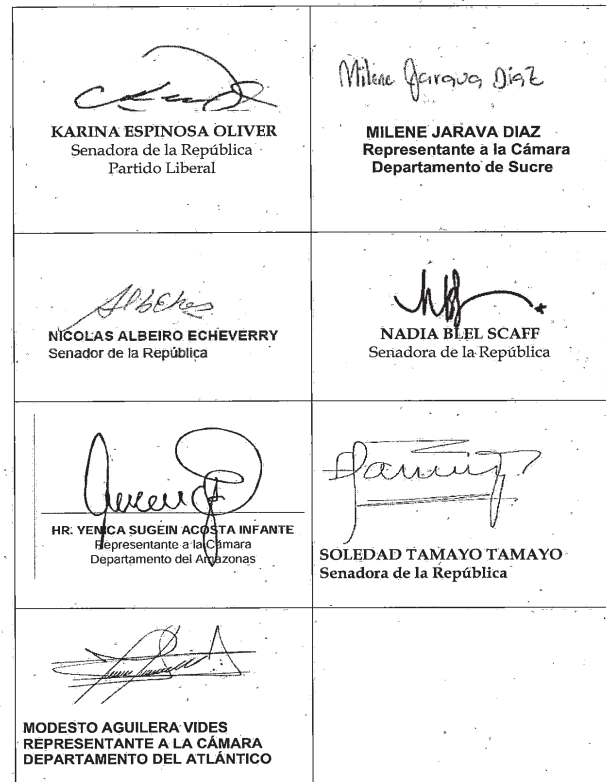 KARINA ESPINOSA OLIVER
Senadora de la República
Partido Liberal
Milene Jarava Diaz
MILENE JARAVA DIAZ
Representante a la Cámara
Departamento de Sucre
NICOLAS ALBEIRO ECHEVERRY
Senador de la República
NADIA BLEL SCAFF
Senadora de la República
HR. YENICA SUGEIN ACOSTA INFANTE
Representante a la Cámara
Departamento del Amazonas
SOLEDAD TAMAYO TAMAYO
Senadora de la República
MODESTO AGUILERA VIDES
REPRESENTANTE A LA CÁMARA
DEPARTAMENTO DEL ATLÁNTICO